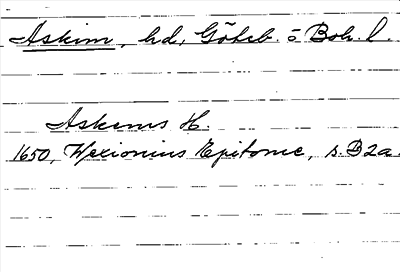 Askim, hd, Göteb. o Boh. l.
Askems H
1650, Wexionius Epitome, s. B2a.